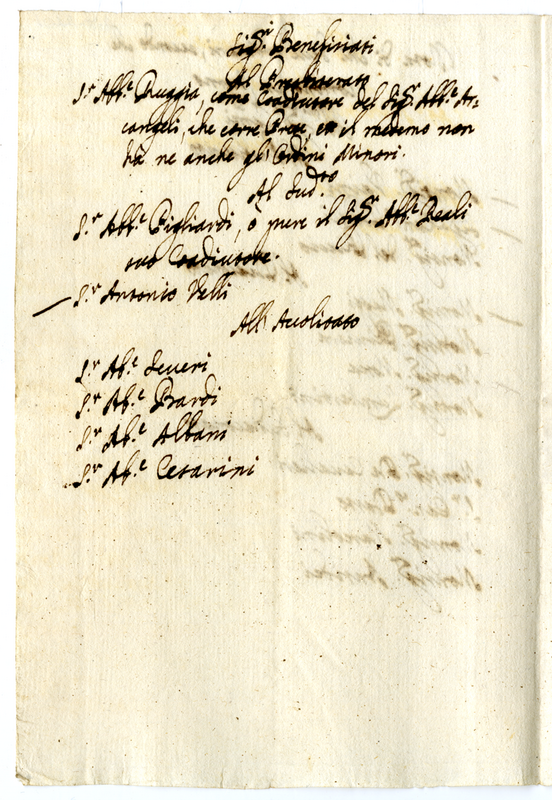 Sig.ri Benefiziati
Al Presbiterato
S.r Abb.e Ruggia, come Coadiutore del Sig.r Abb.e Ar-
cangeli, che corre Prete, et il medemo non
hà ne anche gl'Ordini Minori.
Al Sud.to
S.r Abb.e Pigliardi, ò pure il Sig.r Abb.e Reali
suo Coadiutore.
S.r Antonio Velli
All'Accolitato
S.r Ab.e Severi
S.r Ab.e Bardi
S.r Ab.e Albani
S.r Ab.e Cesarini